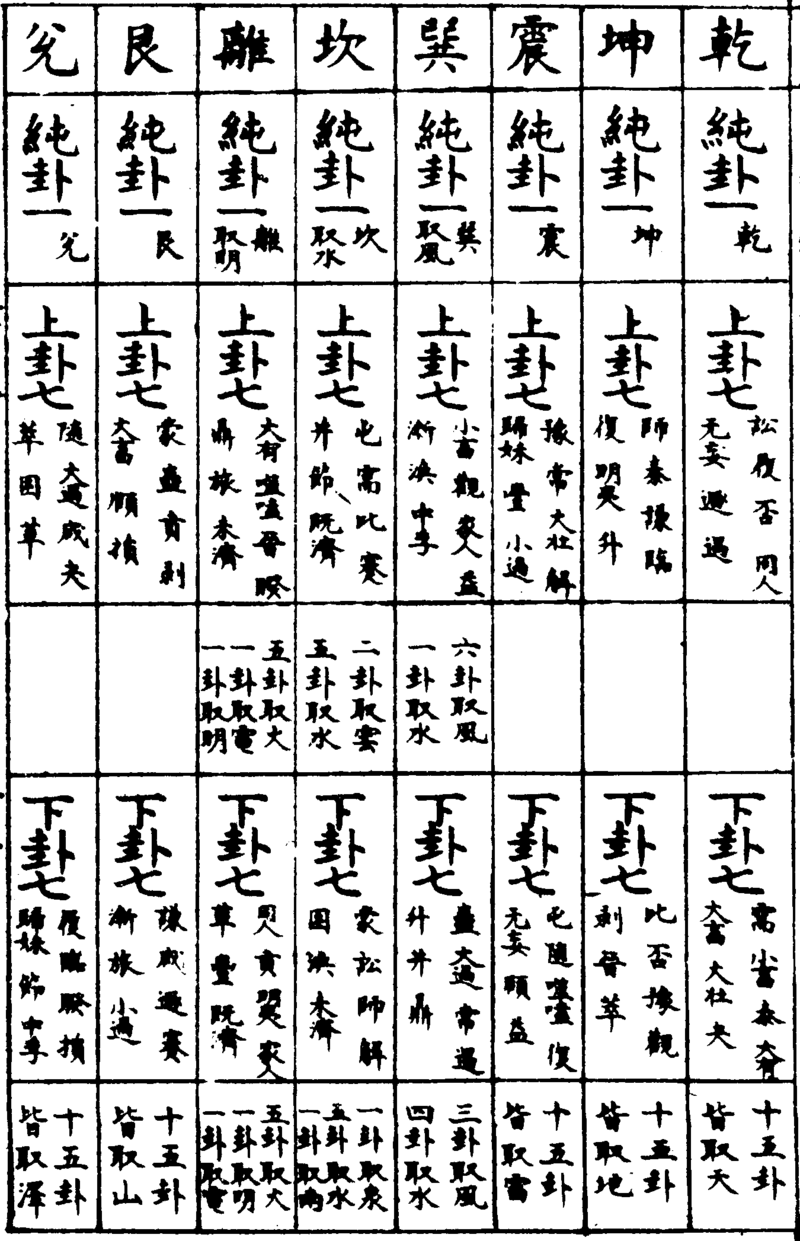 乾
純卦一
乾
上卦七
訟 履 否 同人
无妄 遯 遘
下卦七
需 小畜 泰 大有
大畜 大壯 夬
十五卦
皆取天
坤
純卦一
坤
上卦七
師 泰 謙 臨
復 明夷 升
下卦七
比 否 豫 觀
剝 晉 萃
十五卦
皆取地
震
純卦一
震
上卦七
豫 常 大壯 解
歸妹 豐 小過
下卦七
屯 隨 噬嗑 復
无妄 頤 益
十五卦
皆取雷
巽
純卦一
巽
取風
上卦七
小畜 觀 家人 益
漸 渙 中孚
六卦取風
一卦取木
下卦七
蠱 大過 常 遘
升 井 鼎
三卦取風
四卦取木
坎
純卦一
坎
取水
上卦七
屯 需 比 蹇
井 節 既濟
二卦取雲
五卦取水
下卦七
蒙 訟 師 解
困 渙 未濟
一卦取泉
五卦取水
一卦取雨
離
純卦一
離
取明
上卦七
大有 噬嗑 晉 睽
鼎 旅 未濟
五卦取火
一卦取電
一卦取明
下卦七
同人 賁 明夷 家人
革 豐 既濟
五卦取火
一卦取明
一卦取電
艮
純卦一
艮
上卦七
蒙 蠱 賁 剝
大畜 頤 損
下卦七
謙 咸 遯 蹇
漸 旅 小過
十五卦
皆取山
兌
純卦一
兌
上卦七
隨 大過 咸 夬
萃 困 革
下卦七
履 臨 睽 損
歸妹 節 中孚
十五卦
皆取澤